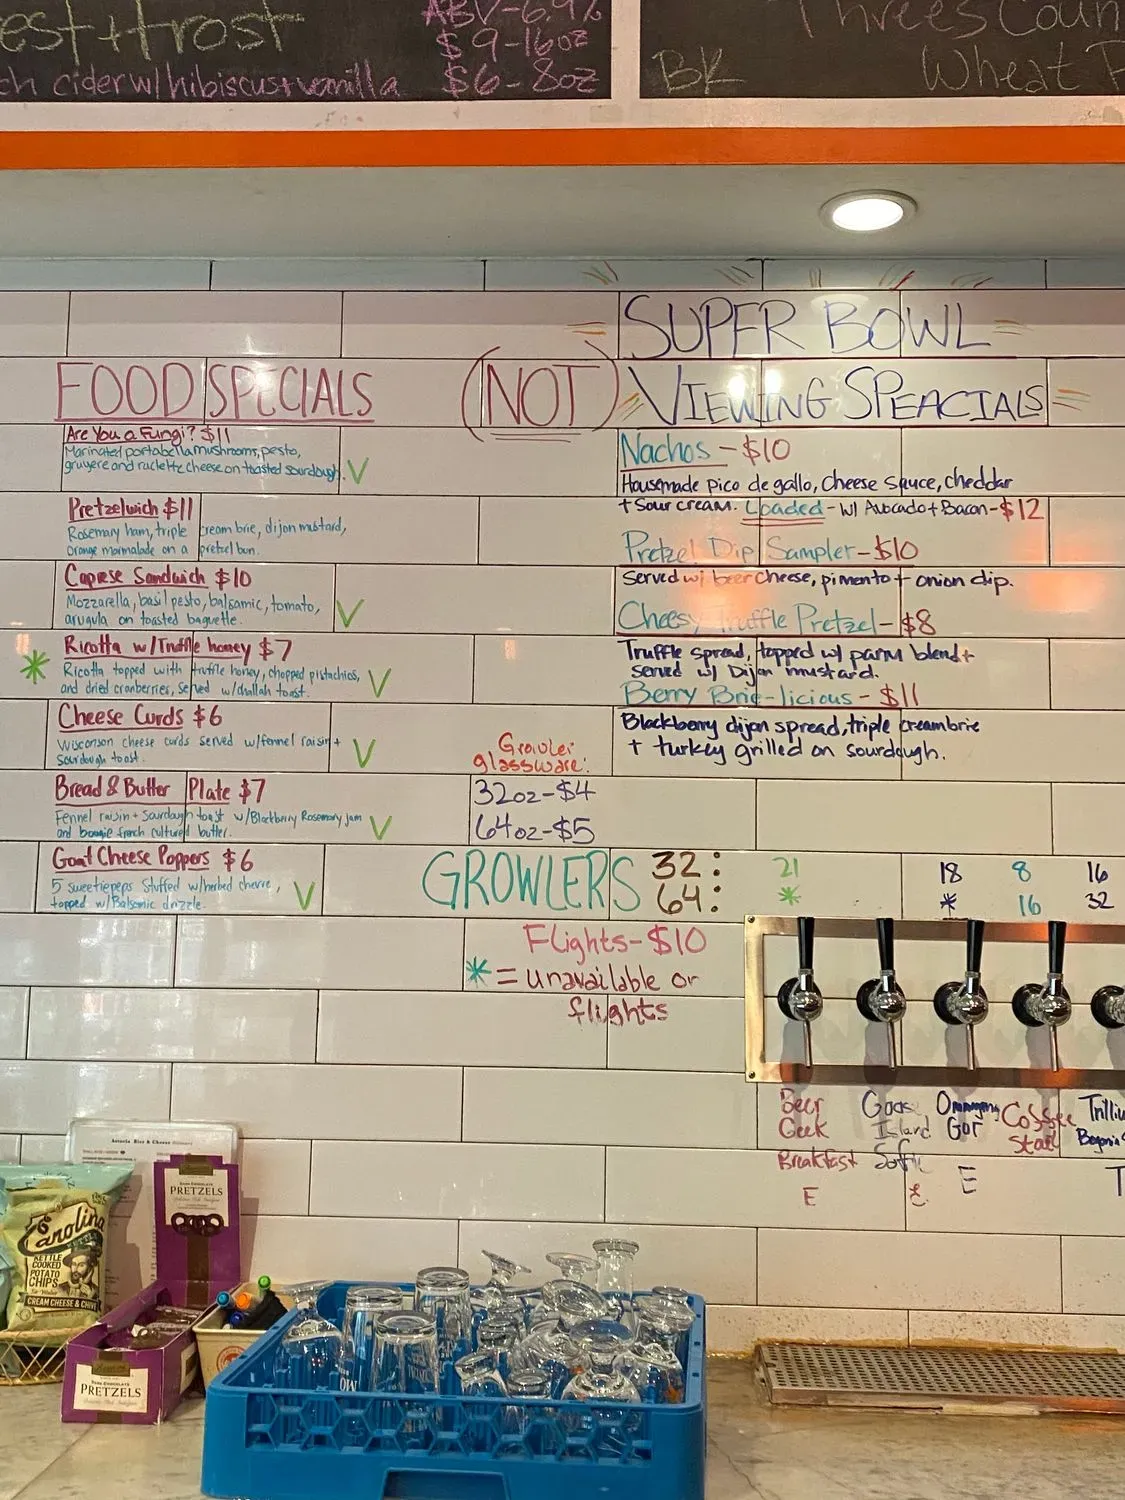 est + frost
ABV-6.9%
$9-16oz
ch cider w/hibiscus+vanilla
$6-8oz
Threes Coun
BK
Wheat
FOOD SPECIALS
Are You a Fungi? $11
Marinated portabella mushrooms, pesto,
gruyere and raclette cheese on toasted sourdough. V
Pretzelwich $11
Rosemary ham, triple cream brie, dijon mustard,
orange marmalade on a pretzel bun.
Caprese Sandwich $10
Mozzarella, basil pesto, balsamic, tomato,
arugula on toasted baguette. V
* Ricotta w/Truffle honey $7
Ricotta topped with truffle honey, chopped pistachios,
and dried cranberries, served w/challah toast. V
Cheese Curds $6
Wisconson cheese curds served w/fennel raisin +
sourdough toast. V
Bread & Butter Plate $7
Fennel raisin + Sourdough toast w/Blackberry Rosemary jam
and bougie french cultured butter. V
Goat Cheese Poppers $6
5 sweetiepeps stuffed w/herbed chevre,
topped w/Balsamic drizzle. V
SUPER BOWL
(NOT) VIEWING SPEACIALS
Nachos - $10
Housemade pico de gallo, cheese sauce, cheddar
+ sour cream. Loaded - w/ Avocado + Bacon - $12
Pretzel Dip Sampler - $10
Served w/ beer cheese, pimento + onion dip.
Cheesy Truffle Pretzel - $8
Truffle spread, topped w/ parm blend +
served w/ Dijon mustard.
Berry Brie-licious - $11
Blackberry dijon spread, triple creambrie
+ turkey grilled on sourdough.
Growler
glassware:
32oz-$4
64oz-$5
GROWLERS 32: 21 18 8 16
64: * * 16 32
Flights-$10
* = unavailable or
flights
Beer
Geek
Breakfast
E
Goose
Island
E
Ommegang
GOT
E
Coffee
Stout
Trilliu
Begonia
T
Astoria Bier & Cheese
DARK CHOCOLATE
PRETZELS
Carolina
KETTLE
COOKED
POTATO
CHIPS
CREAM CHEESE & CHIVE
DARK CHOCOLATE
PRETZELS